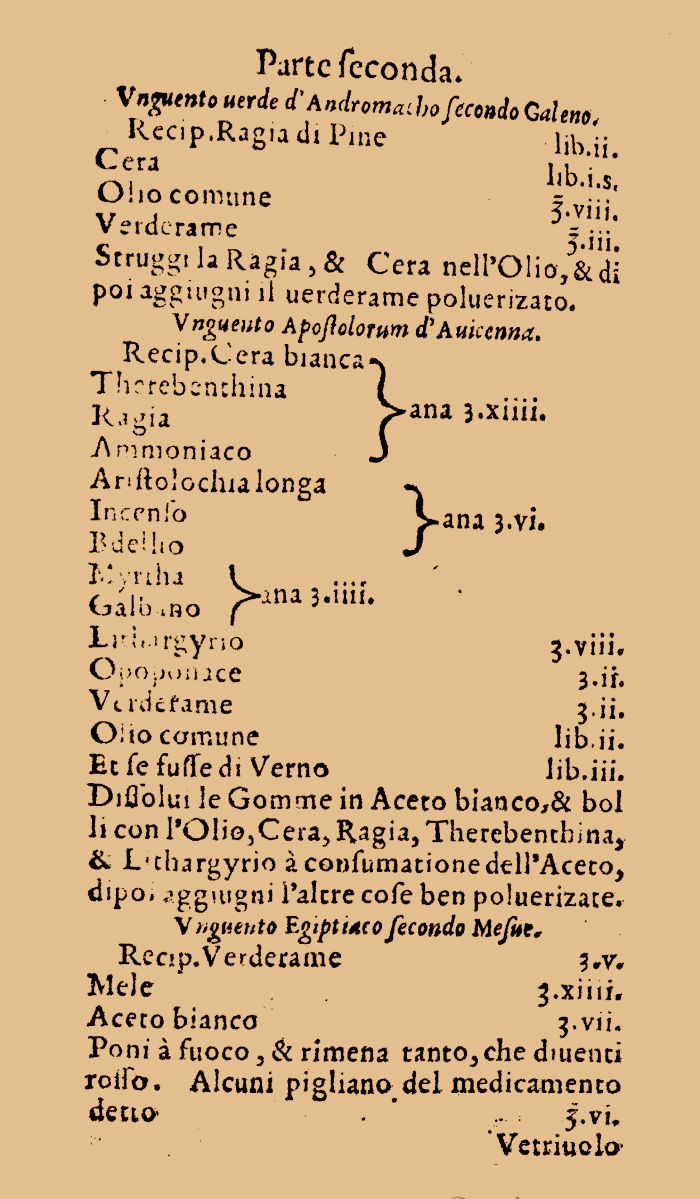 Parte ſeconda.
Vnguento uerde d'Andromacho ſecondo Galeno.
Recip.Ragia di Pine lib.ii.
Cera lib.i.s.
Olio comune ℥.viii.
Verderame ℥.iii.
Struggi la Ragia, & Cera nell'Olio, & di
poi aggiugni il uerderame poluerizato.
Vnguento Apoſtolorum d'Auicenna.
Recip.Cera bianca
Therebenthina
Ragia
Ammoniaco
ana ʒ.xiiii.
Ariſtolochia longa
Incenſo
Bdellio
ana ʒ.vi.
Myrrha
Galbano
ana ʒ.iiii.
Lithargyrio ʒ.viii.
Opoponace ʒ.ii.
Verderame ʒ.ii.
Olio comune lib.ii.
Et ſe fuſſe di Verno lib.iii.
Diſſolui le Gomme in Aceto bianco,& bol
li con l'Olio, Cera, Ragia, Therebenthina,
& Lithargyrio à conſumatione dell'Aceto,
dipoi aggiugni l'altre coſe ben poluerizate.
Vnguento Egiptiaco ſecondo Meſue.
Recip.Verderame ʒ.v.
Mele ʒ.xiiii.
Aceto bianco ʒ.vii.
Poni à fuoco, & rimena tanto, che diuenti
roſſo. Alcuni pigliano del medicamento
detto ℥.vi.
Vetriuolo